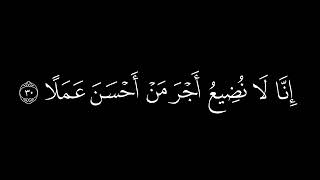 إِنَّا لَا نُضِيعُ أَجْرَ مَنْ أَحْسَنَ عَمَلًا ۝٣٠